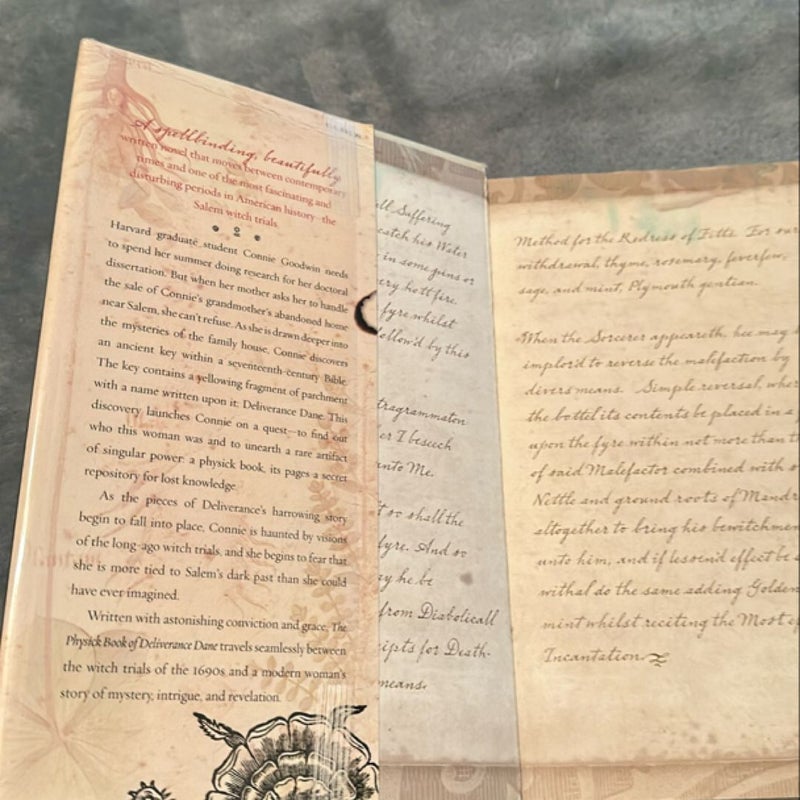 A spellbinding, beautifully
written novel that moves between contemporary
times and one of the most fascinating and
disturbing periods in American history—the
Salem witch trials.
Harvard graduate student Connie Goodwin needs
to spend her summer doing research for her doctoral
dissertation. But when her mother asks her to handle
the sale of Connie's grandmother's abandoned home
near Salem, she can't refuse. As she is drawn deeper into
the mysteries of the family house, Connie discovers
an ancient key within a seventeenth-century Bible.
The key contains a yellowing fragment of parchment
with a name written upon it: Deliverance Dane. This
discovery launches Connie on a quest—to find out
who this woman was and to unearth a rare artifact
of singular power: a physick book, its pages a secret
repository for lost knowledge.
As the pieces of Deliverance's harrowing story
begin to fall into place, Connie is haunted by visions
of the long-ago witch trials, and she begins to fear that
she is more tied to Salem's dark past than she could
have ever imagined.
Written with astonishing conviction and grace, The
Physick Book of Deliverance Dane travels seamlessly between
the witch trials of the 1690s and a modern woman's
story of mystery, intrigue, and revelation.
Suffering
catch his Water
in some guns or
ery hott fire.
fyre whilst
follow'd by this
tragrammaton
er I beseech
unto Me.
t so shall the
fyre. And so
ay he be
from Diabolicall
ipts for Death-
means.
Method for the Redress of Fitts. For our
withdrawal, thyme, rosemary, feverfew,
sage, and mint, Plymouth gentian.
When the Sorcerer appeareth, hee may
implor'd to reverse the malefaction by
divers means. Simple reversal, wher
the bottel its contents be placed in a
upon the fyre within not more than
of said Malefactor combined with
Nettle and ground roots of Mandr
altogether to bring his bewitchmen
unto him, and if lessen'd effect be
withal do the same adding Golden
mint whilst reciting the Most
Incantation